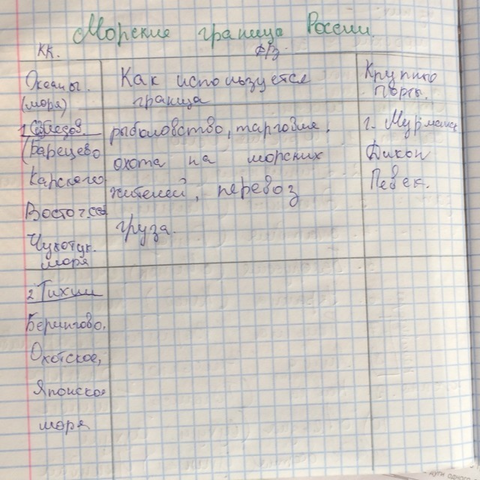 Морские граница России.
КК. Ф/З.
Океаны. (моря)
Как используется граница
Крупные порты.
(Баренцево
Карского
Восточ.сиб
Чукотук. моря
рыбаловство, тарговля,
охота на морских
жителей, перевоз
груза.
г. Мурманск
Диксон
Певек.
2 Тихии
Берингово,
Охотское,
Японское
моря